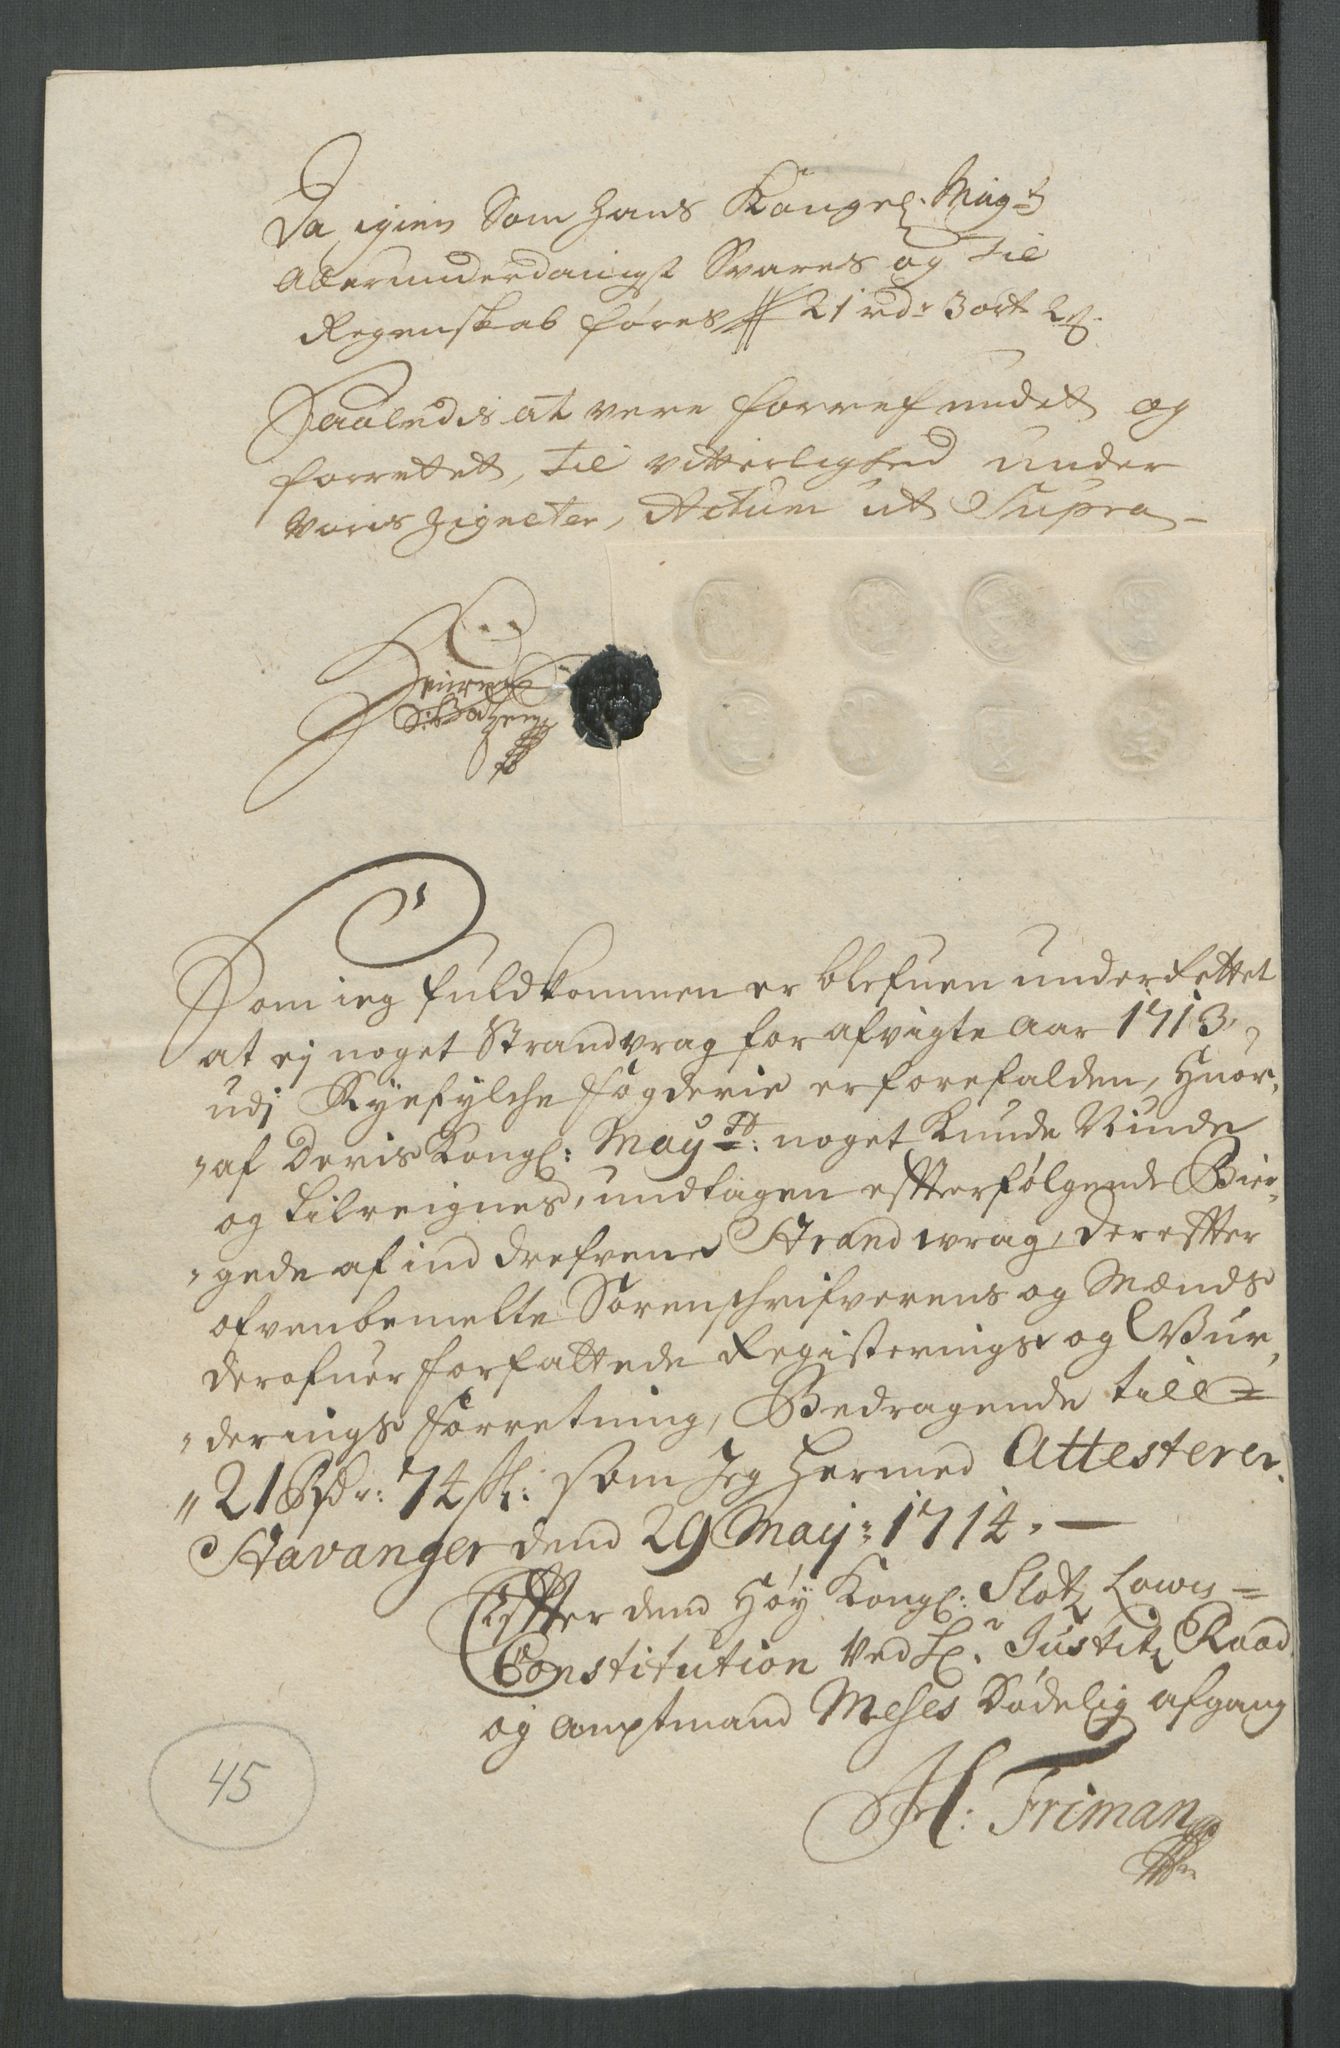 Da igien Som Hans Kongel. Mayts
Allerunderdanigst Svares og Til
Regenskab føres 21 rdr 3 ort 2 s.
Saaledis at vere forrefundet og
forrettet, Til vitterlighed under
voris Zigneter, Actum ut Supra
Som ieg fuldkommen er blefuen underrettet
at ej noget Strandvrag for afvigte Aar 1713,
udj Ryefylche fogderie er forefalden, Huor,
af Deris Kongl: Mayst: noget kunde Vinde
og tilreignes, undtagen effterfølgende Bier,
gede af ind drefvene Strand wrag, dereffter
ofvenbemelte Sorenschrifverens og Mænds
derofuer forfattede Registerings og Vur,
derings forretning, Bedragende till
21 Rdr: 74 s: som Jeg Hermed Attesterer.
Stavanger dend 29 Maij: 1714.
Effter dend Høy Kongl: Slotz Lowis
Constitution Ved Hr. Justitz Raad
og amptmand Meses dødelig afgang
H: Friman
45